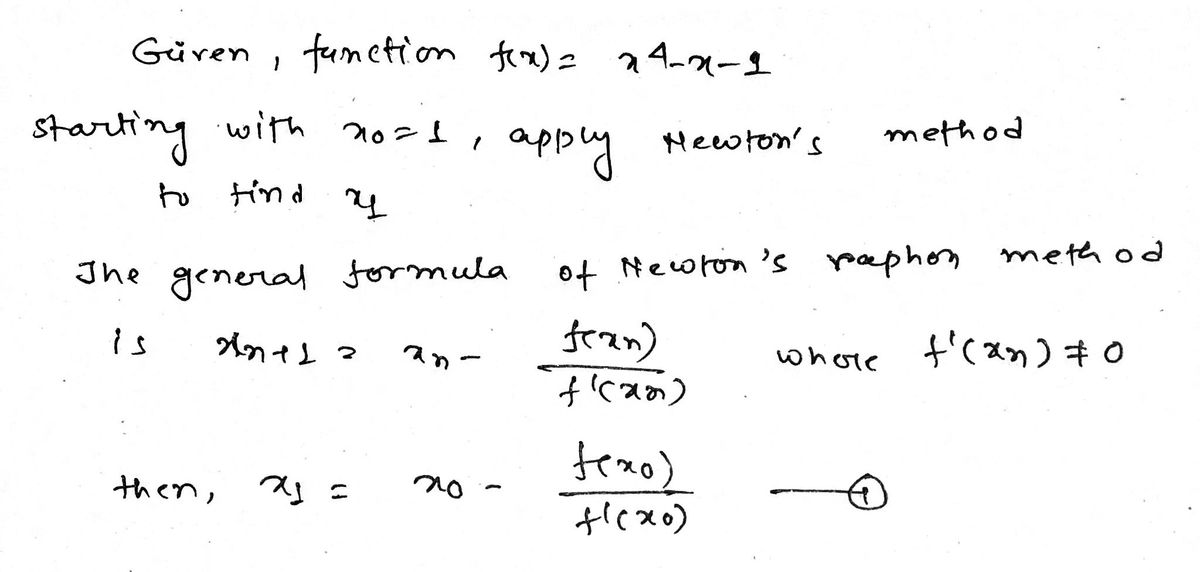 Given, function f(x) = x^4-x-1
starting with x0=1, apply Newton's method
to find x1
The general formula of Newton's raphon method
is xn+1 = xn - f(xn)/f'(xn) where f'(xn) ≠ 0
then, x1 = x0 - f(x0)/f'(x0) —①